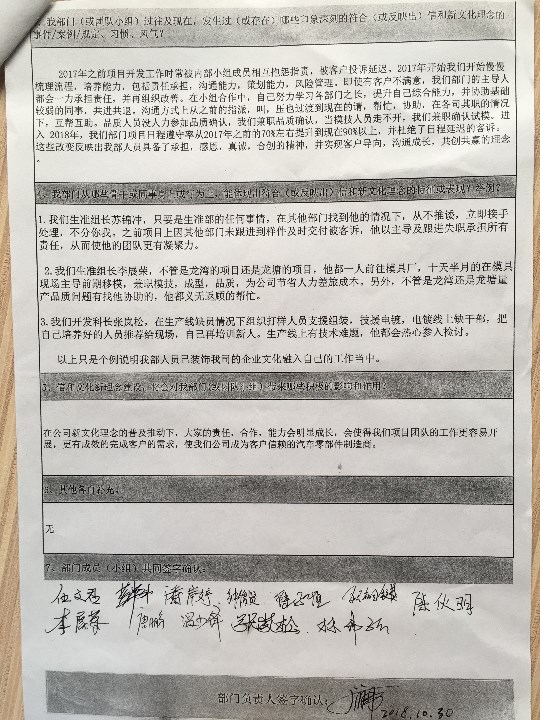 3、我部门（或团队小组）过往及现在，发生过（或存在）哪些印象深刻的符合（或反映出）信和新文化理念的
事件/案例/规定、习惯、风气？
2017年之前项目开发工作时常被内部小组成员相互抱怨指责，被客户投诉延迟。2017年开始我们开始慢慢
梳理流程，培养能力，包括责任承担，沟通能力，策划能力，风险管理。即使有客户不满意，我们部门的主导人
都会一力承担责任，并再组织改善。在小组合作中，自己努力学习各部门之长，提升自己综合能力，并协助基础
较弱的同事，共进共退，沟通方式上从之前的指派，叫，压也过渡到现在的请，帮忙，协助，在各司其职的情况
下，互帮互助。品质人员没人力参加品质确认，我们兼职品质确认，当模技人员走不开，我们兼职确认试模。进
入2018年，我们部门项目日程遵守率从2017年之前的70%左右提升到现在90%以上，并杜绝了日程延迟的客诉。
这些改变反映出我部人员具备了承担，感恩，真诚，合创的精神，并实现客户导向，沟通成长，共创共赢的理念
。
4、我部门从哪些骨干或同事身上或行为上，能体现出符合（或反映出）信和新文化理念的特征或表现？举例？
1.我们生准组长苏锦冲，只要是生准部的任何事情，在其他部门找到他的情况下，从不推诿，立即接手
处理，不分你我，之前项目上因其他部门未跟进到样件及时交付被客诉，他以主导及跟进失职承担所有
责任，从而使他的团队更有凝聚力。
2.我们生准组长李展荣，不管是龙湾的项目还是龙塘的项目，他都一人前往模具厂，十天半月的在模具
现场主导前期移模，兼职模技，成型，品质，为公司节省人力差旅成本。另外，不管是龙湾还是龙塘量
产品质问题有找他协助的，他都义无返顾的帮忙。
3.我们开发科长张岚松，在生产线缺员情况下组织打样人员支援组装，技援电镀，电镀线上缺干部，把
自己培养好的人员推荐给现场，自己再培训新人。生产线上有技术难题，他都会热心参入检讨。
以上只是个例说明我部人员已装饰我司的企业文化融入自己的工作当中。
5、信和文化新理念建设，将会对我部门（或团队小组）带来哪些积极的影响和作用？
在公司新文化理念的普及推动下，大家的责任，合作，能力会明显成长，会使得我们项目团队的工作更容易开
展，更有成效的完成客户的需求，使我们公司成为客户信赖的汽车零部件制造商。
6、其他各自补充：
无
7、部门成员（小组）共同签字确认：
李展荣
部门负责人签字确认：
2018.10.30